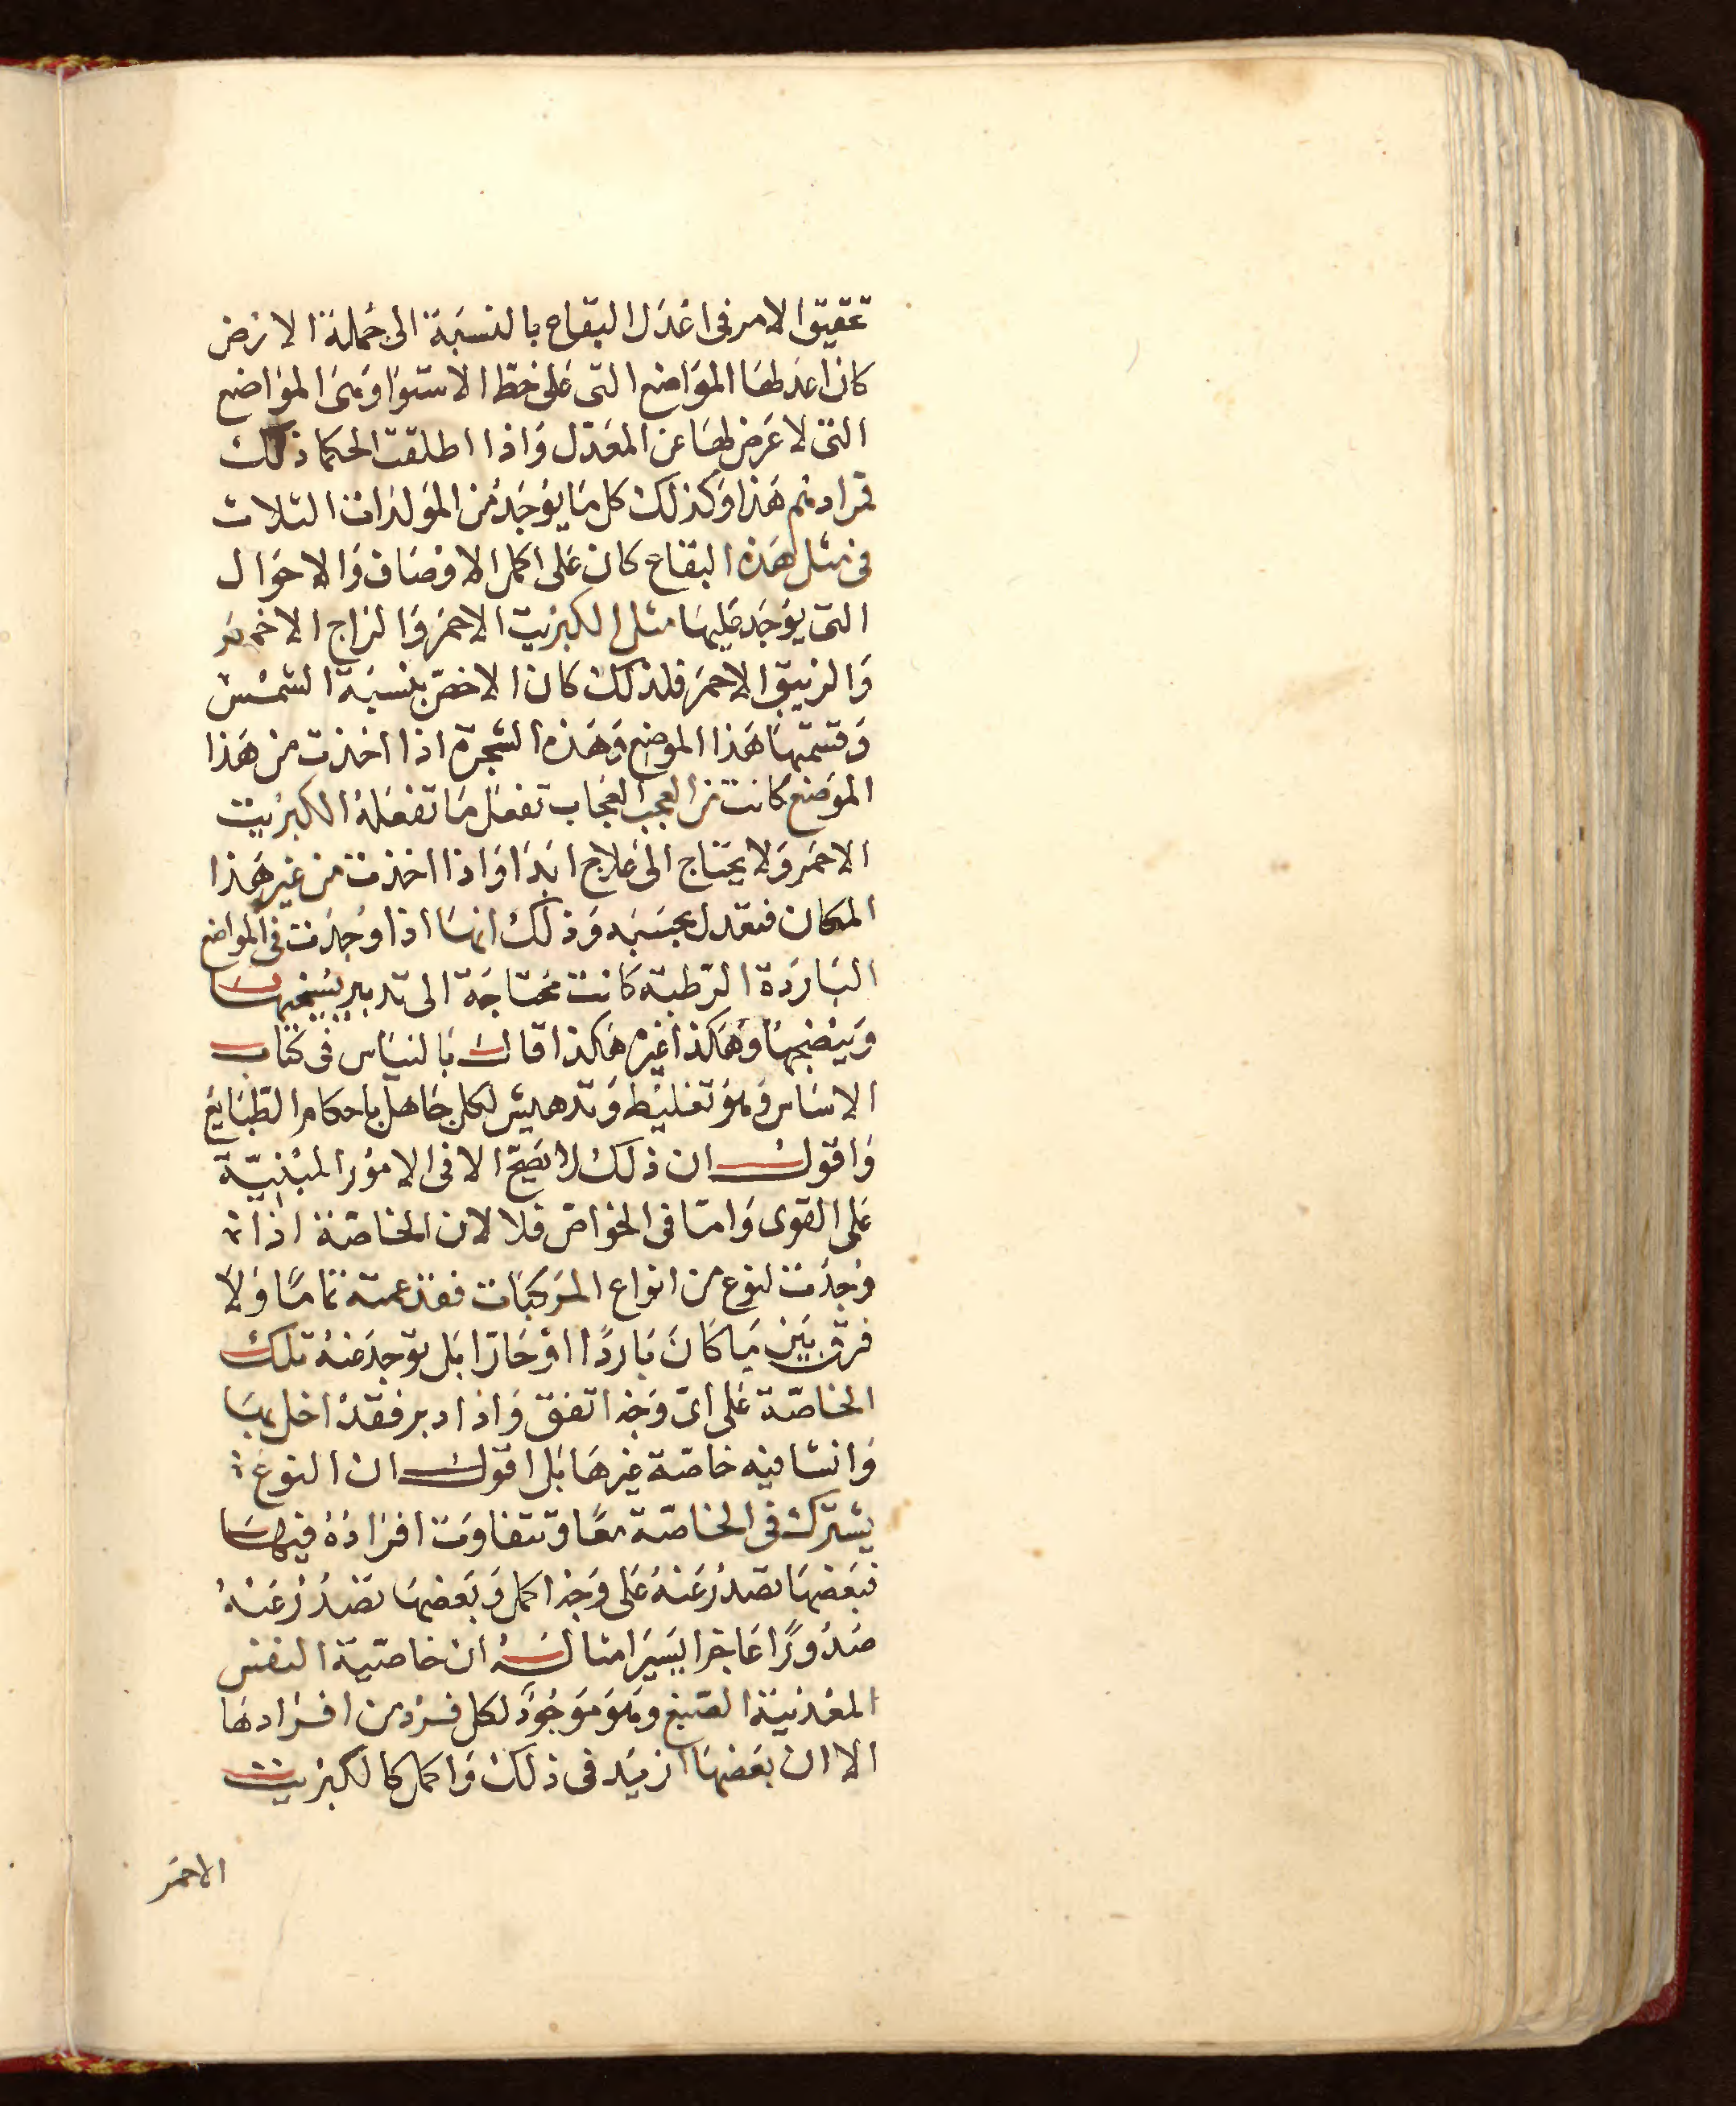 تحقيق الامر فى اعدل البقاع بالنسبة الى جملة الارض
كان اعدلها المواضع التى على خط الاستوا وهى المواضع
التى لا عرض لها عن المعدل واذا اطلقت الحكما ذلك
فمرادهم هذا وكذلك كل ما يوجد من المولدات الثلاث
فى مثل هذه البقاع كان على اكمل الاوصاف والاحوال
التى يوجد عليها مثل الكبريت الاحمر والزاج الاخضر
والزيبق الاحمر فلذلك كان الاخص بنسبة الشمس
وقسمتها هذا الموضع وهذه الشجرة اذا اخذت من هذا
الموضع كانت من العجب العجاب تفعل ما تفعله الكبريت
الاحمر ولا يحتاج الى علاج ابدا واذا اخذت من غير هذا
المكان فتعدل بحسبه وذلك انها اذا وجدت فى المواضع
الباردة الرطبة كانت محتاجة الى تدبير يسخنها
وينضجها وهكذا غيره هكذا قال بالنياس فى كتاب
الاساس وهو تغليط وتدهيش لكل جاهل باحكام الطبايع
واقول ان ذلك لا يصح الا فى الامور المبنية
على القوى واما فى الخواص فلا لان الخاصة اذا
وجدت لنوع من انواع المركبات فقد عمته تماما ولا
فرق بين ما كان باردا او حارا بل توجد منه تلك
الخاصة على اى وجه اتفق واذا دبر فقد اخل بها
وانشا فيه خاصة غيرها بل اقول ان النوع
يشترك فى الخاصة معا وتتفاوت افراده فيها
فبعضها تصدر عنه على وجه اكمل وبعضها تصدر عنه
صدورا عاجزا يسيرا مثاله ان خاصية النفس
المعدنية الصبغ وهو موجود لكل فرد من افرادها
الا ان بعضها ازيد فى ذلك واكمل كالكبريت
الاحمر